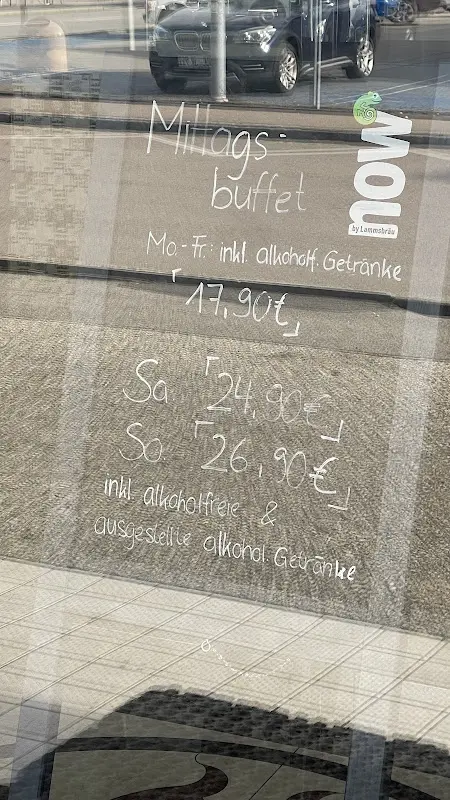 Mittags-
buffet
now
by Lammsbräu
Mo.-Fr.: inkl. alkoholf. Getränke
「17,90€」
Sa 「24,90€」
So 「26,90€」
inkl. alkoholfreie &
ausgestellte alkohol. Getränke